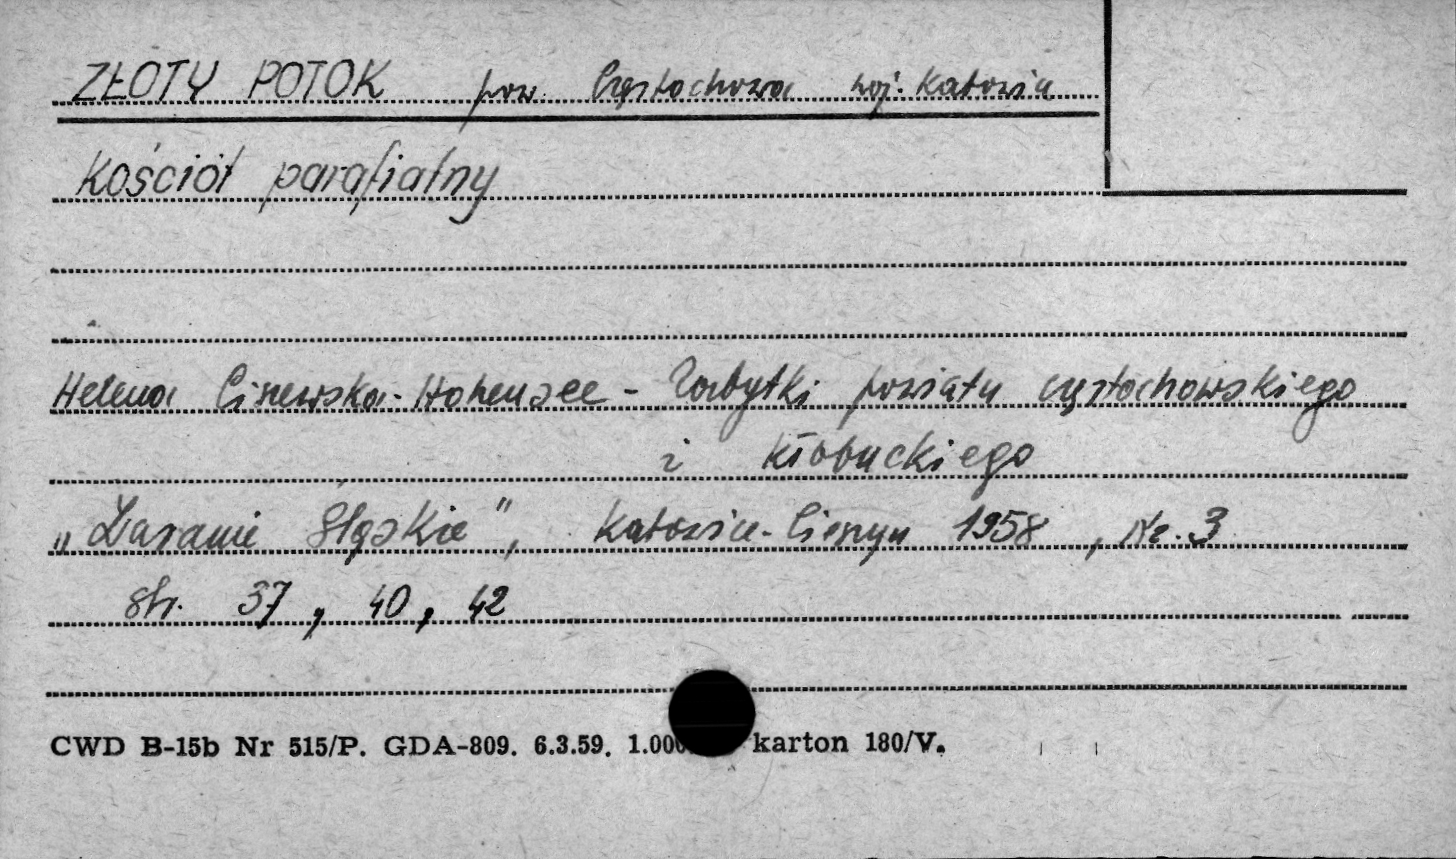 ZŁOTY POTOK pow. Częstochowa woj. Katowice
Kościół parafialny
Helena Ciszewska-Hohensee - Zabytki powiatu częstochowskiego
i kłobuckiego
„Zaranie Śląskie", Katowice-Cieszyn 1958, Nr. 3
str. 37, 40, 42
CWD B-15b Nr 515/P. GDA-809. 6.3.59. 1.000 karton 180/V.